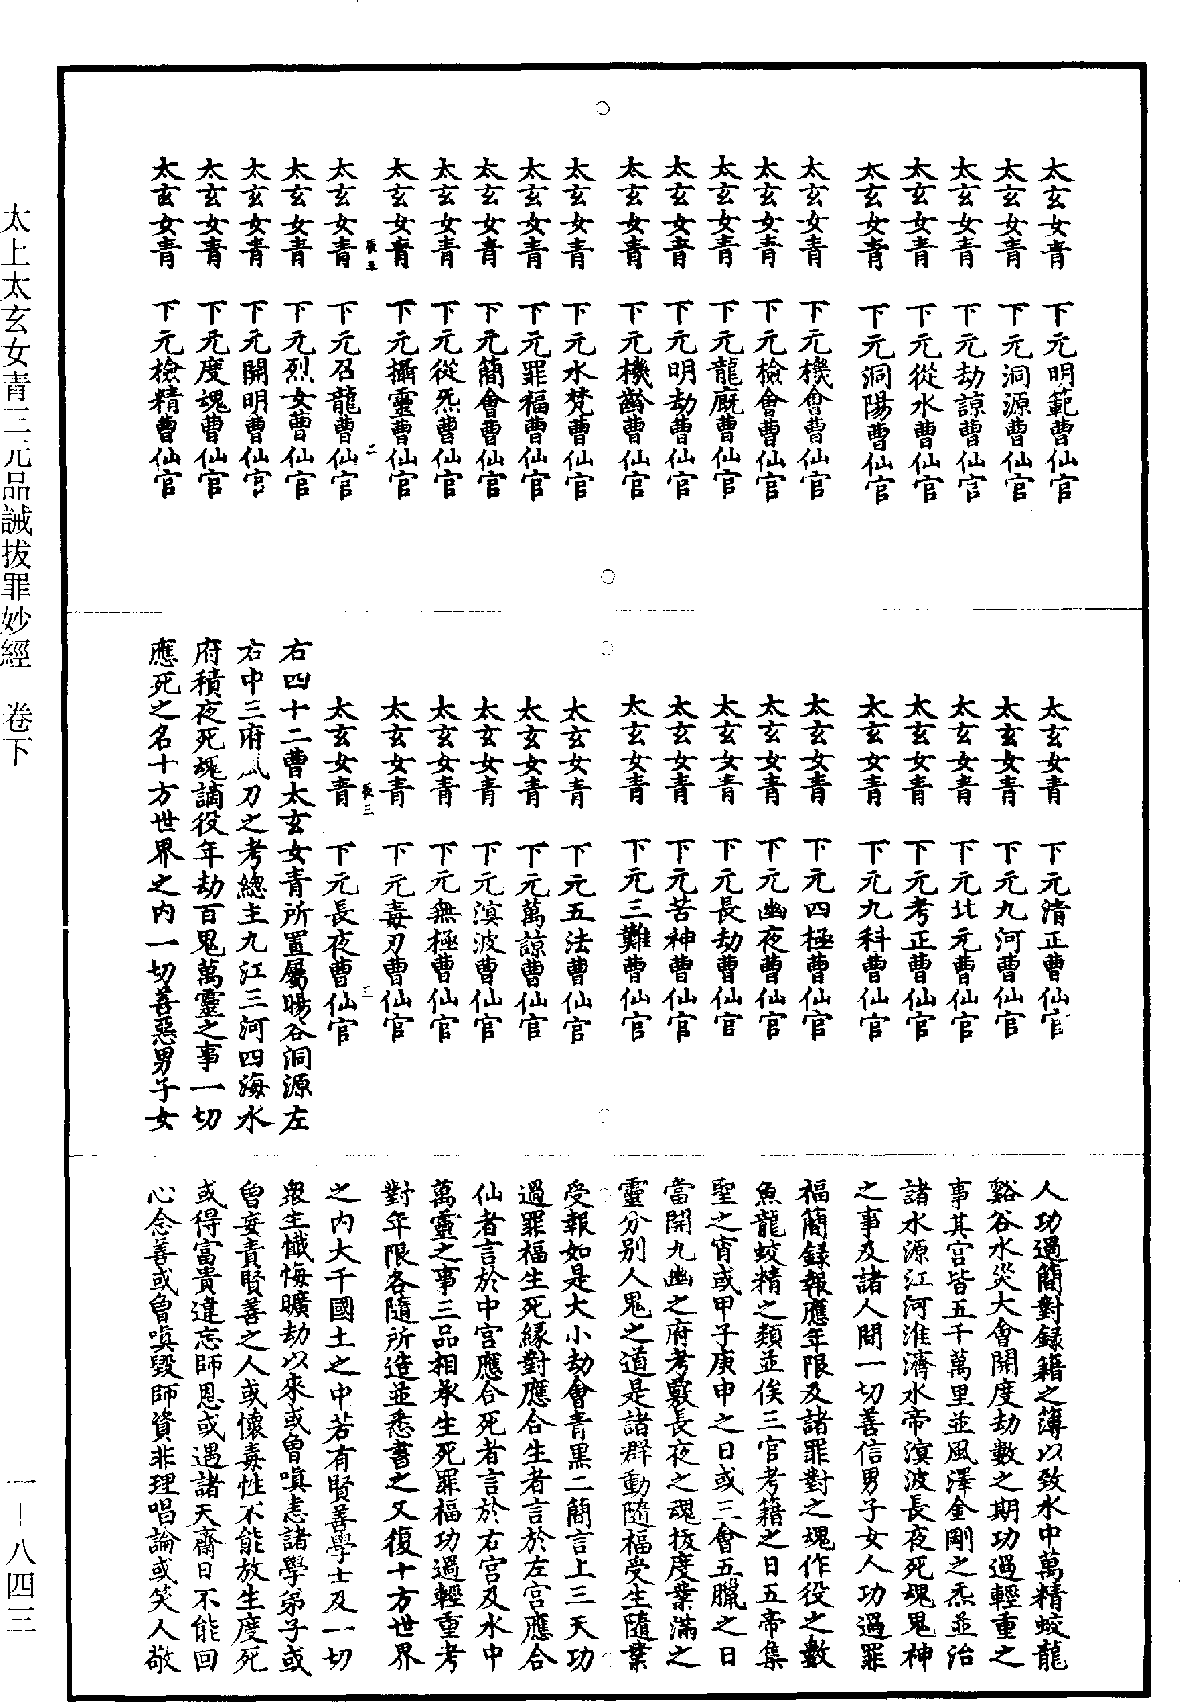 太玄女青　下元明範曹仙官
太玄女青　下元洞源曹仙官
太玄女青　下元劫諒曹仙官
太玄女青　下元從水曹仙官
太玄女青　下元洞陽曹仙官
太玄女青　下元機會曹仙官
太玄女青　下元檢會曹仙官
太玄女青　下元龍厩曹仙官
太玄女青　下元明劫曹仙官
太玄女青　下元機齡曹仙官
太玄女青　下元水梵曹仙官
太玄女青　下元罪福曹仙官
太玄女青　下元簡會曹仙官
太玄女青　下元從炁曹仙官
太玄女青　下元攝靈曹仙官
太玄女青　下元召龍曹仙官
太玄女青　下元烈女曹仙官
太玄女青　下元開明曹仙官
太玄女青　下元度魂曹仙官
太玄女青　下元檢精曹仙官
太玄女青　下元清正曹仙官
太玄女青　下元九河曹仙官
太玄女青　下元北元曹仙官
太玄女青　下元考正曹仙官
太玄女青　下元九科曹仙官
太玄女青　下元四極曹仙官
太玄女青　下元幽夜曹仙官
太玄女青　下元長劫曹仙官
太玄女青　下元苦神曹仙官
太玄女青　下元三難曹仙官
太玄女青　下元五法曹仙官
太玄女青　下元萬諒曹仙官
太玄女青　下元溟波曹仙官
太玄女青　下元無極曹仙官
太玄女青　下元毒刃曹仙官
太玄女青　下元長夜曹仙官
右四十二曹太玄女青所置屬暘谷洞源左
右中三府風刀之考總主九江三河四海水
府積夜死魂謫役年劫百鬼萬靈之事一切
應死之名十方世界之内一切善惡男子女
人功過簡對録籍之簿以致水中萬精蛟龍
谿谷水災大會開度劫數之期功過輕重之
事其宫皆五千萬里並風澤金剛之炁並治
諸水源江河淮濟水帝溟波長夜死魂鬼神
之事及諸人間一切善信男子女人功過罪
福簡録報應年限及諸罪對之魂作役之數
魚龍蛟精之類並俟三官考籍之日五帝集
聖之宵或甲子庚申之日或三會五臘之日
當開九幽之府考覈長夜之魂拔度業滿之
靈分别人鬼之道是諸群動隨福受生隨業
受報如是大小劫會青黑二簡言上三天功
過罪福生死緣對應合生者言於左宫應合
仙者言於中宫應合死者言於右宫及水中
萬靈之事三品相承生死罪福功過輕重考
對年限各隨所造並悉書之又復十方世界
之内大千國土之中若有賢善學士及一切
衆生懺悔曠劫以來或曾嗔恚諸學弟子或
曾妄責賢善之人或懷毒性不能放生度死
或得富貴違忘師恩或遇諸天齋日不能回
心念善或曾嗔毀師資非理唱論或笑人敬
太上太玄女青三元品誡拔罪妙經　卷下
一－八四三